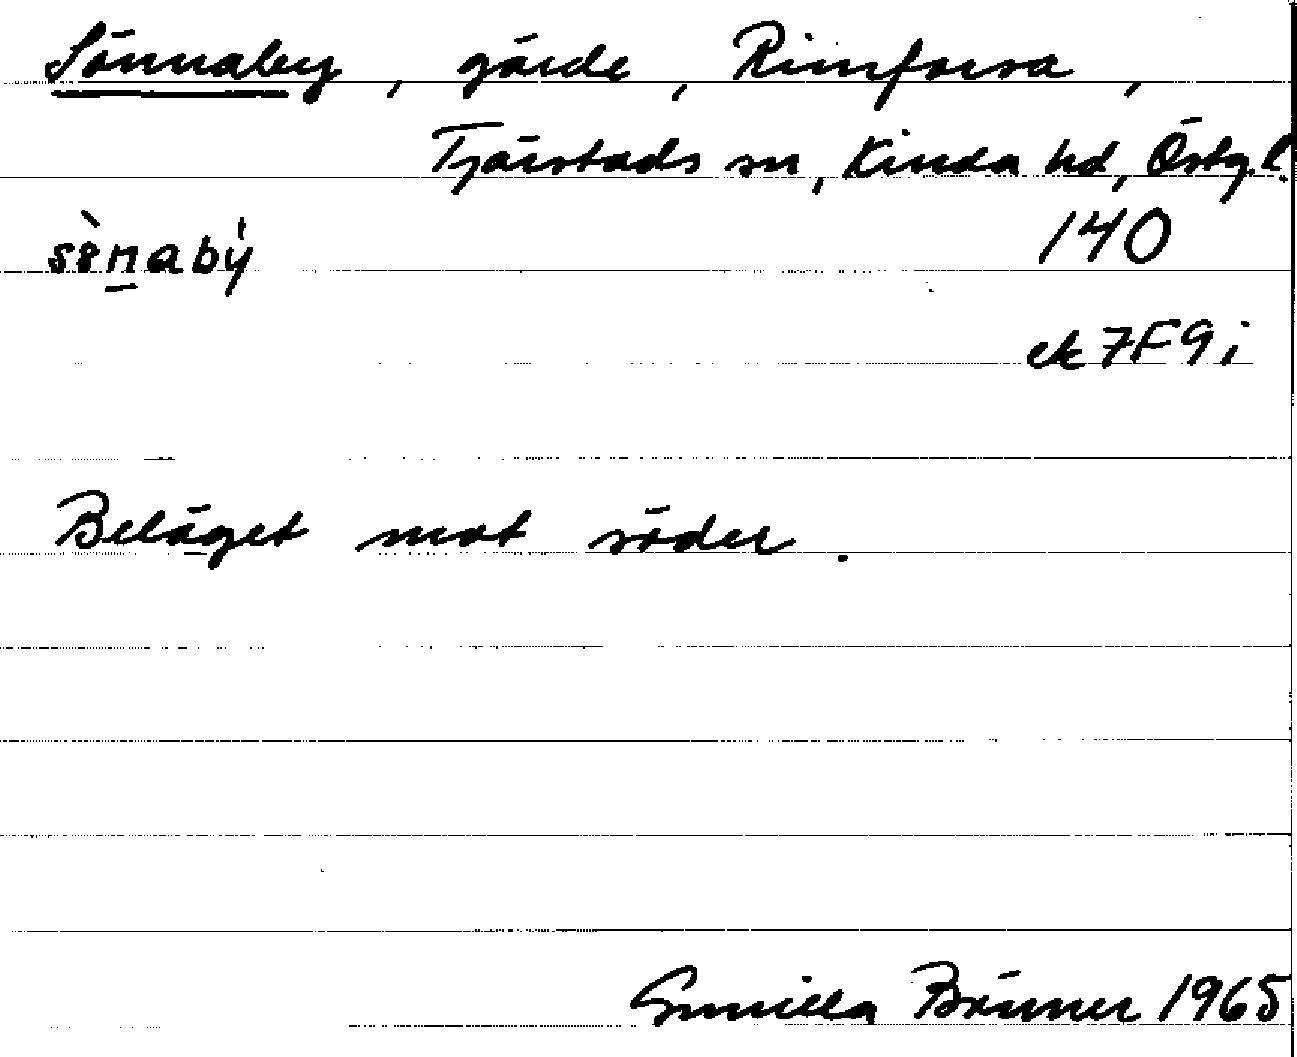 Sönnaby, gärde, Rimforsa,
Tjärstads sn, Kinda hd, Östg.l.
140
ek 7F9i
Beläget mot söder.
Gunilla 1965